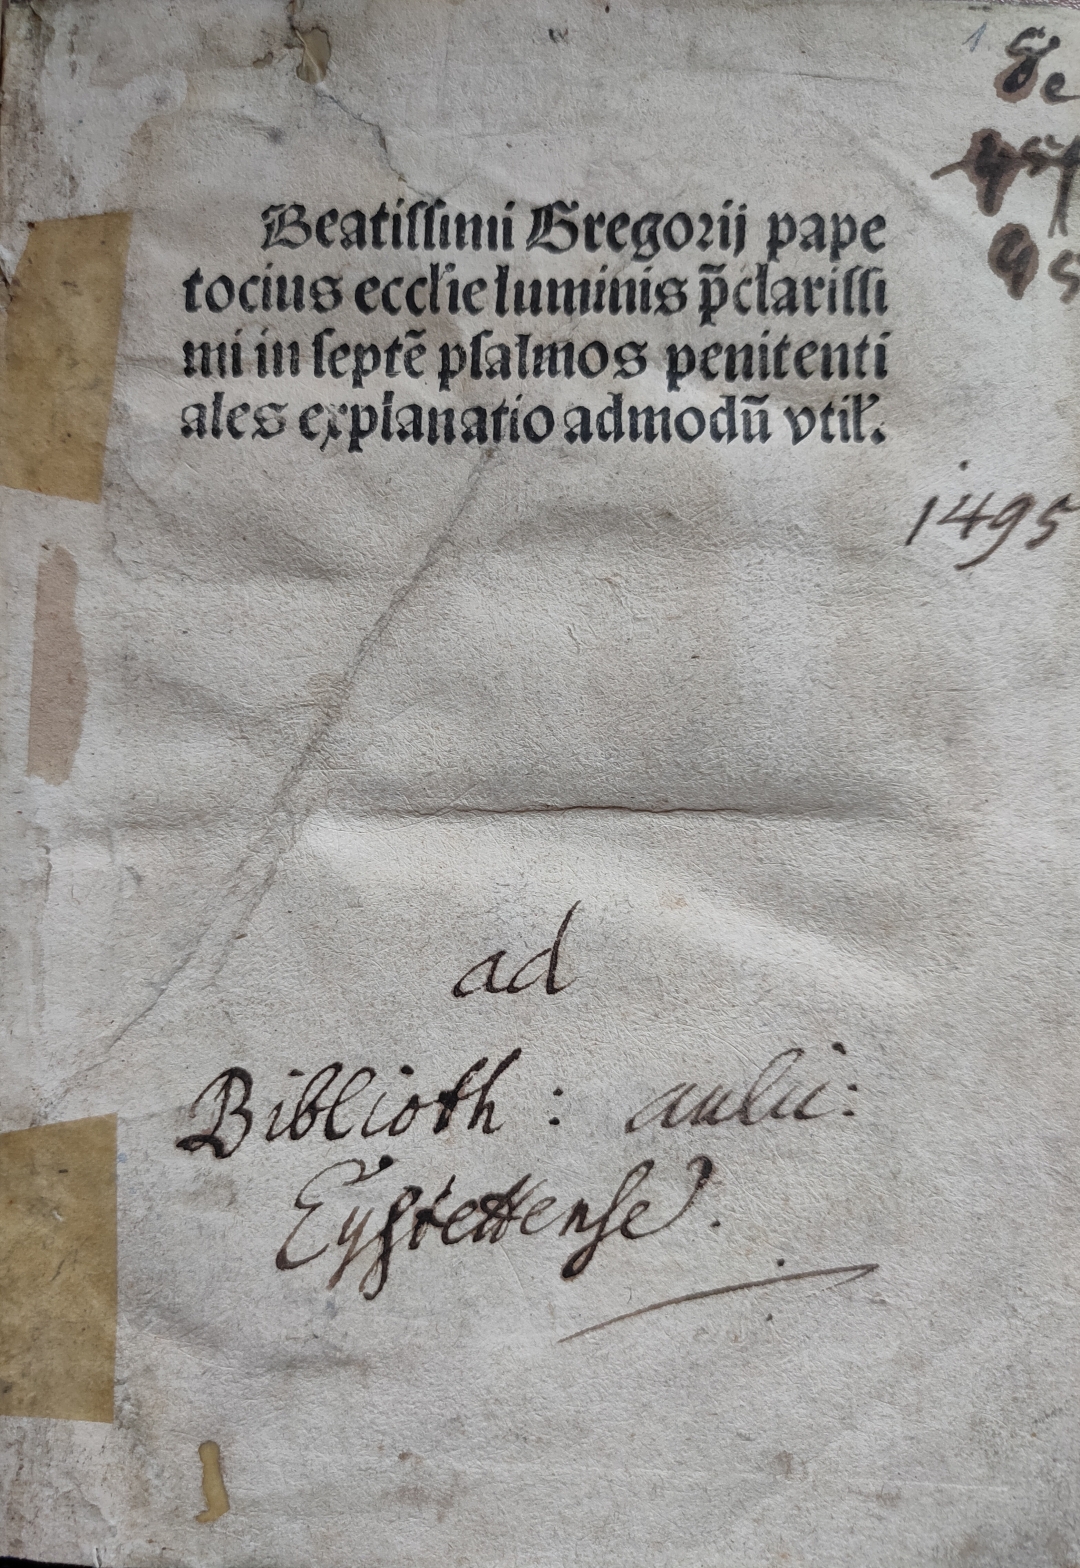 1
Beatissimi Gregorij pape
tocius eccl'ie luminis p̄clarissi
mi in septē psalmos penitenti
ales explanatio admodū vtil'.
1495
ad
Biblioth: aulic:
Eystettense.